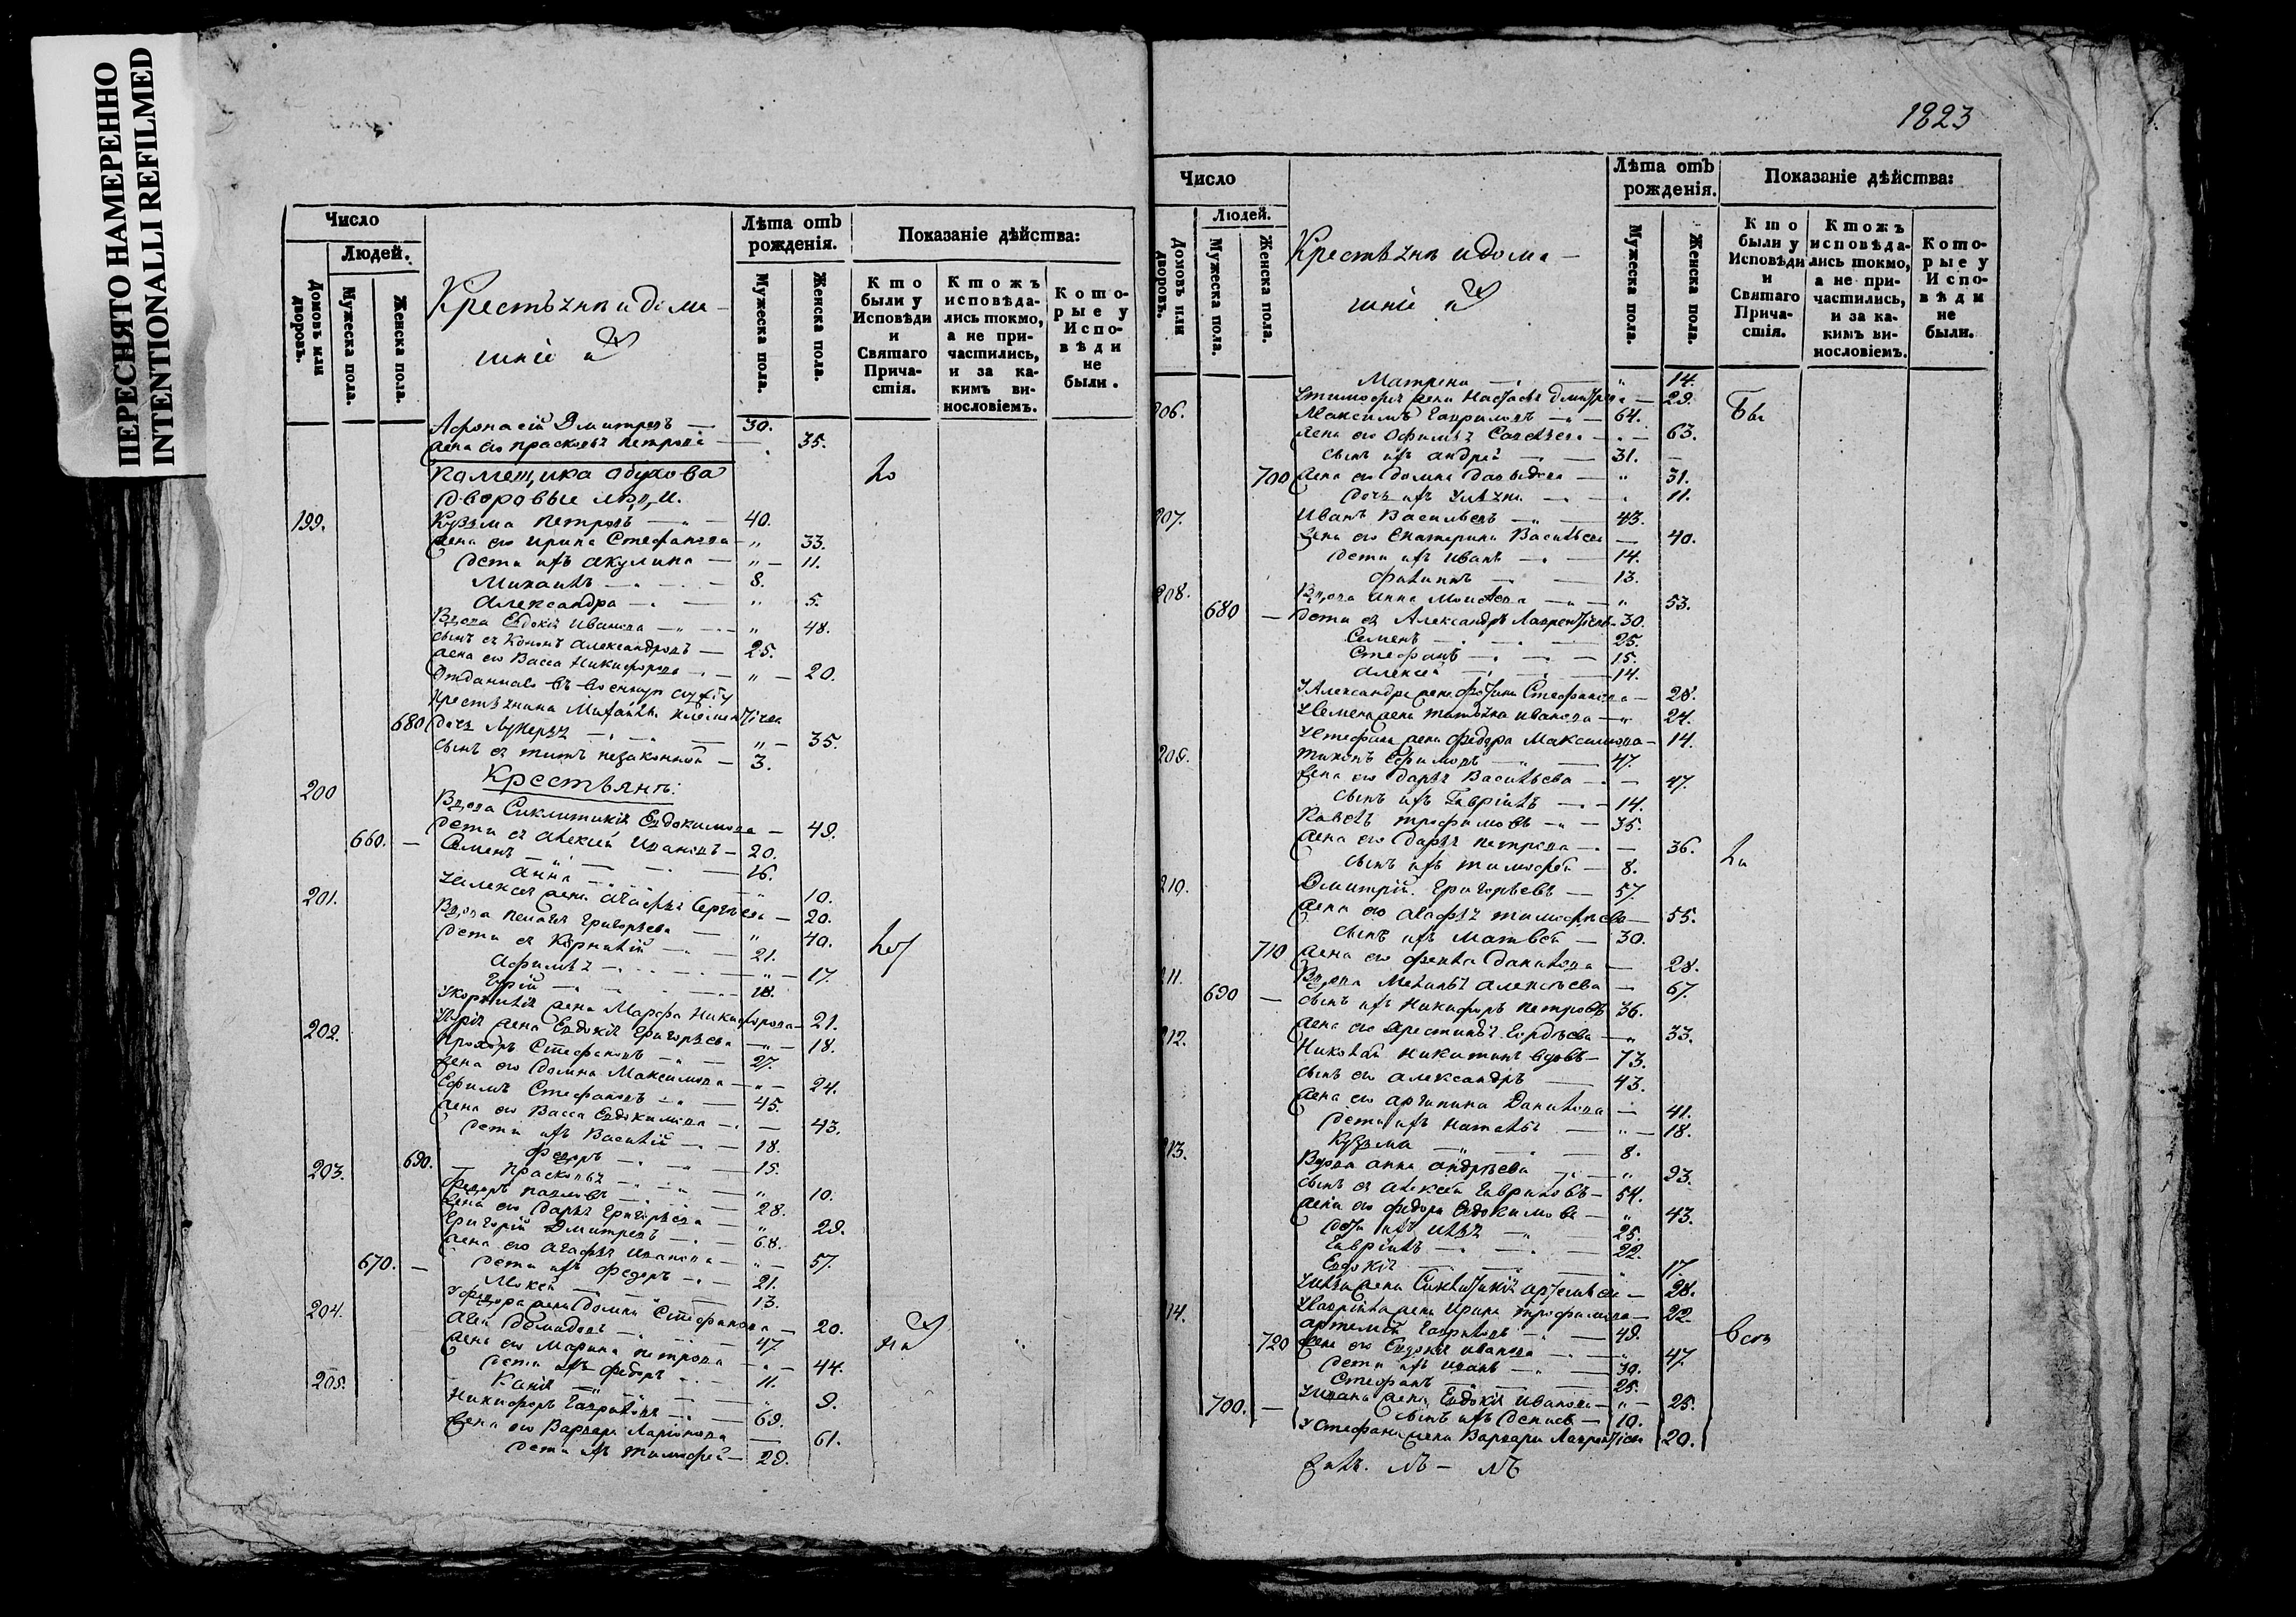 ПЕРЕСНЯТО НАМЕРЕННО
INTENTIONALLI REFILMED
Число
Людей.
Домовъ или дворовъ.
Мужеска пола.
Женска пола.
Крестьяне и дома-
шніе и
Лѣта отъ рожденія.
Мужеска пола.
Женска пола.
Показаніе дѣйства:
Кто были у Исповѣди и Святаго Причастія.
Ктожъ исповѣдались токмо, а не причастились, и за какимъ винословіемъ.
Которые у Исповѣди не были.
Афонасій Дмитревъ — 30.
жена ево Прасковья Петрова — 35.
Помещика Обухова
дворовые люди.
199. Кузьма Петровъ — 40.
жена ево Ирина Стефанова — " 33.
дети ихъ Акулина — " — 11.
Михаилъ — 8.
Александра — " 5.
Вдова Евдокія Иванова — " 48.
сынъ ея Кононъ Александровъ — 25.
жена ево Васса Никифорова — " — 20.
Отданнаго въ военную службу
крестьянина Михаила
680 дочь — " — 35.
сынъ ея Титъ незаконной — 3.
Крестьянъ:
200 Вдова Синклитикія Евдокимова — 49.
дети ея Алексей Ивановъ — 20.
660. — Семенъ — 16.
Анна — " 10.
У Алексея жена Агафья Сергеева — 20.
201. Вдова Пелагея Григорьева — " 40.
дети ея Корнилій — 21.
Афимья — " — 17.
Гурій — 18.
У Корнилія жена Марфа Никифорова — 21.
У Гурія жена Евдокія Григорьева — " — 18.
202. Прохоръ Стефановъ — 27.
жена ево Домна Максимова — " — 24.
Ефимъ Стефановъ — 45.
жена ево Васса Евдокимова — 43.
дети ихъ Василій — 18.
Федоръ — 15.
690. Прасковья — " 10.
203. Федоръ Павловъ — 28.
жена ево Дарья Григорьева — " 29.
Григорій Дмитревъ — 68.
жена ево Агафья Иванова — " — 57.
670. — дети ихъ Федоръ — 21.
Мокей — 13.
У Федора жена Домна Стефанова — 20.
204. — 47.
жена ево Марина Петрова — 44.
дети ихъ Федоръ — 11.
— " 9.
205. Никифоръ Гавриловъ — 69.
жена ево Варвара Ларіонова — 61.
дети ихъ Тимофей — 29.
1823
Число
Людей.
Домовъ или дворовъ.
Мужеска пола.
Женска пола.
Крестьяне и дома-
шніе и
Лѣта отъ рожденія.
Мужеска пола.
Женска пола.
Показаніе дѣйства:
Кто были у Исповѣди и Святаго Причастія.
Ктожъ исповѣдались токмо, а не причастились, и за какимъ винословіемъ.
Которые у Исповѣди не были.
Матрена — " 14.
У Тимофея жена Настасья Дмитрева — 29.
206. Максимъ Гавриловъ — 64.
жена ево Офимья Савельева — 63.
сынъ ихъ Андрей — 31.
700 жена ево Домна Давыдова — " 31.
дочь ихъ Ульяна — 11.
207. Иванъ Васильевъ — 43.
жена ево Екатерина Васильева — 40.
дети ихъ Иванъ — 14.
Филипъ — 13.
208. Вдова Анна Моисеева — " 53.
680 — дети ея Александръ Лаврентіевъ — 30.
Семенъ — 25.
Стефанъ — 15.
Алексей — 14.
У Александра жена Стефанова — 28.
У Семена жена Татьяна Иванова — " 24.
У Стефана жена Федора Максимова — 14.
209. Тихонъ Ефимовъ — 47.
жена ево Дарья Васильева — 47.
сынъ ихъ Гавріилъ — 14.
Павелъ Трофимовъ — 35.
жена ево Дарья Петрова — 36.
сынъ ихъ Тимофей — 8.
210. Дмитрій Григорьевъ — 57.
жена ево Агафья Тимофеева — 55.
сынъ ихъ Матвей — 30.
710 жена ево Фекла Данилова — 28.
211. Вдова Меланья Алексеева — 67.
690 — сынъ ихъ Никифоръ Петровъ 36.
жена ево Христинья Гордеева — " 33.
212. Николай Никитинъ вдовъ — 73.
сынъ ево Александръ — 43.
жена ево Агрипина Данилова — 41.
дети ихъ Наталья — " — 18.
Кузьма — 8.
213. Вдова Анна Андреева — " 23.
сынъ ея Алексей Гавриловъ — 54.
жена ево Федора Евдокимова — " 43.
дети ихъ Илья — 25.
Гавріилъ — 22.
Евдокія — " 17.
У Ильи жена Синклитикія Артемьева — 28.
У Гавріила жена Ирина Трофимова — 22.
214. Артемій Гавриловъ — 49.
720 жена ево Евдокія Иванова — " 47.
дети ихъ Иванъ — 30.
Стефанъ — 25.
У Ивана жена Евдокія Иванова — " — 25.
700. — сынъ ихъ Денисъ — 10.
У Стефана жена Варвара Лаврентіева 20.